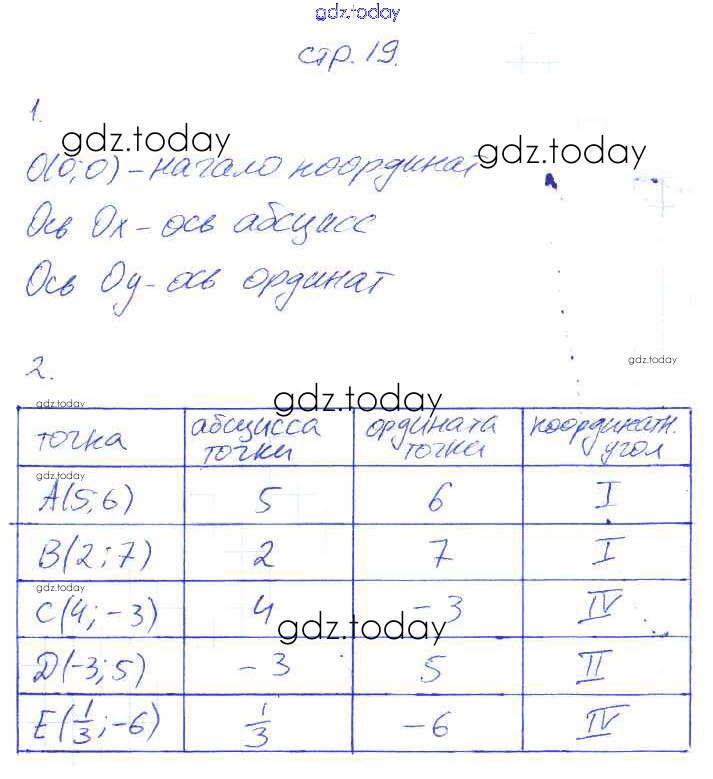 gdz.today
стр. 19.
1.
gdz.today
gdz.today
O(0;0) – начало координат
Ось Ox – ось абсцисс
Ось Oy – ось ординат
gdz.today
2.
gdz.today
gdz.today
точка абсцисса точки ордината точки координатн. угол
gdz.today
A(5;6) 5 6 I
B(2;7) 2 7 I
gdz.today
C(4;-3) 4 -3 IV
gdz.today
D(-3;5) -3 5 II
E(1/3;-6) 1/3 -6 IV